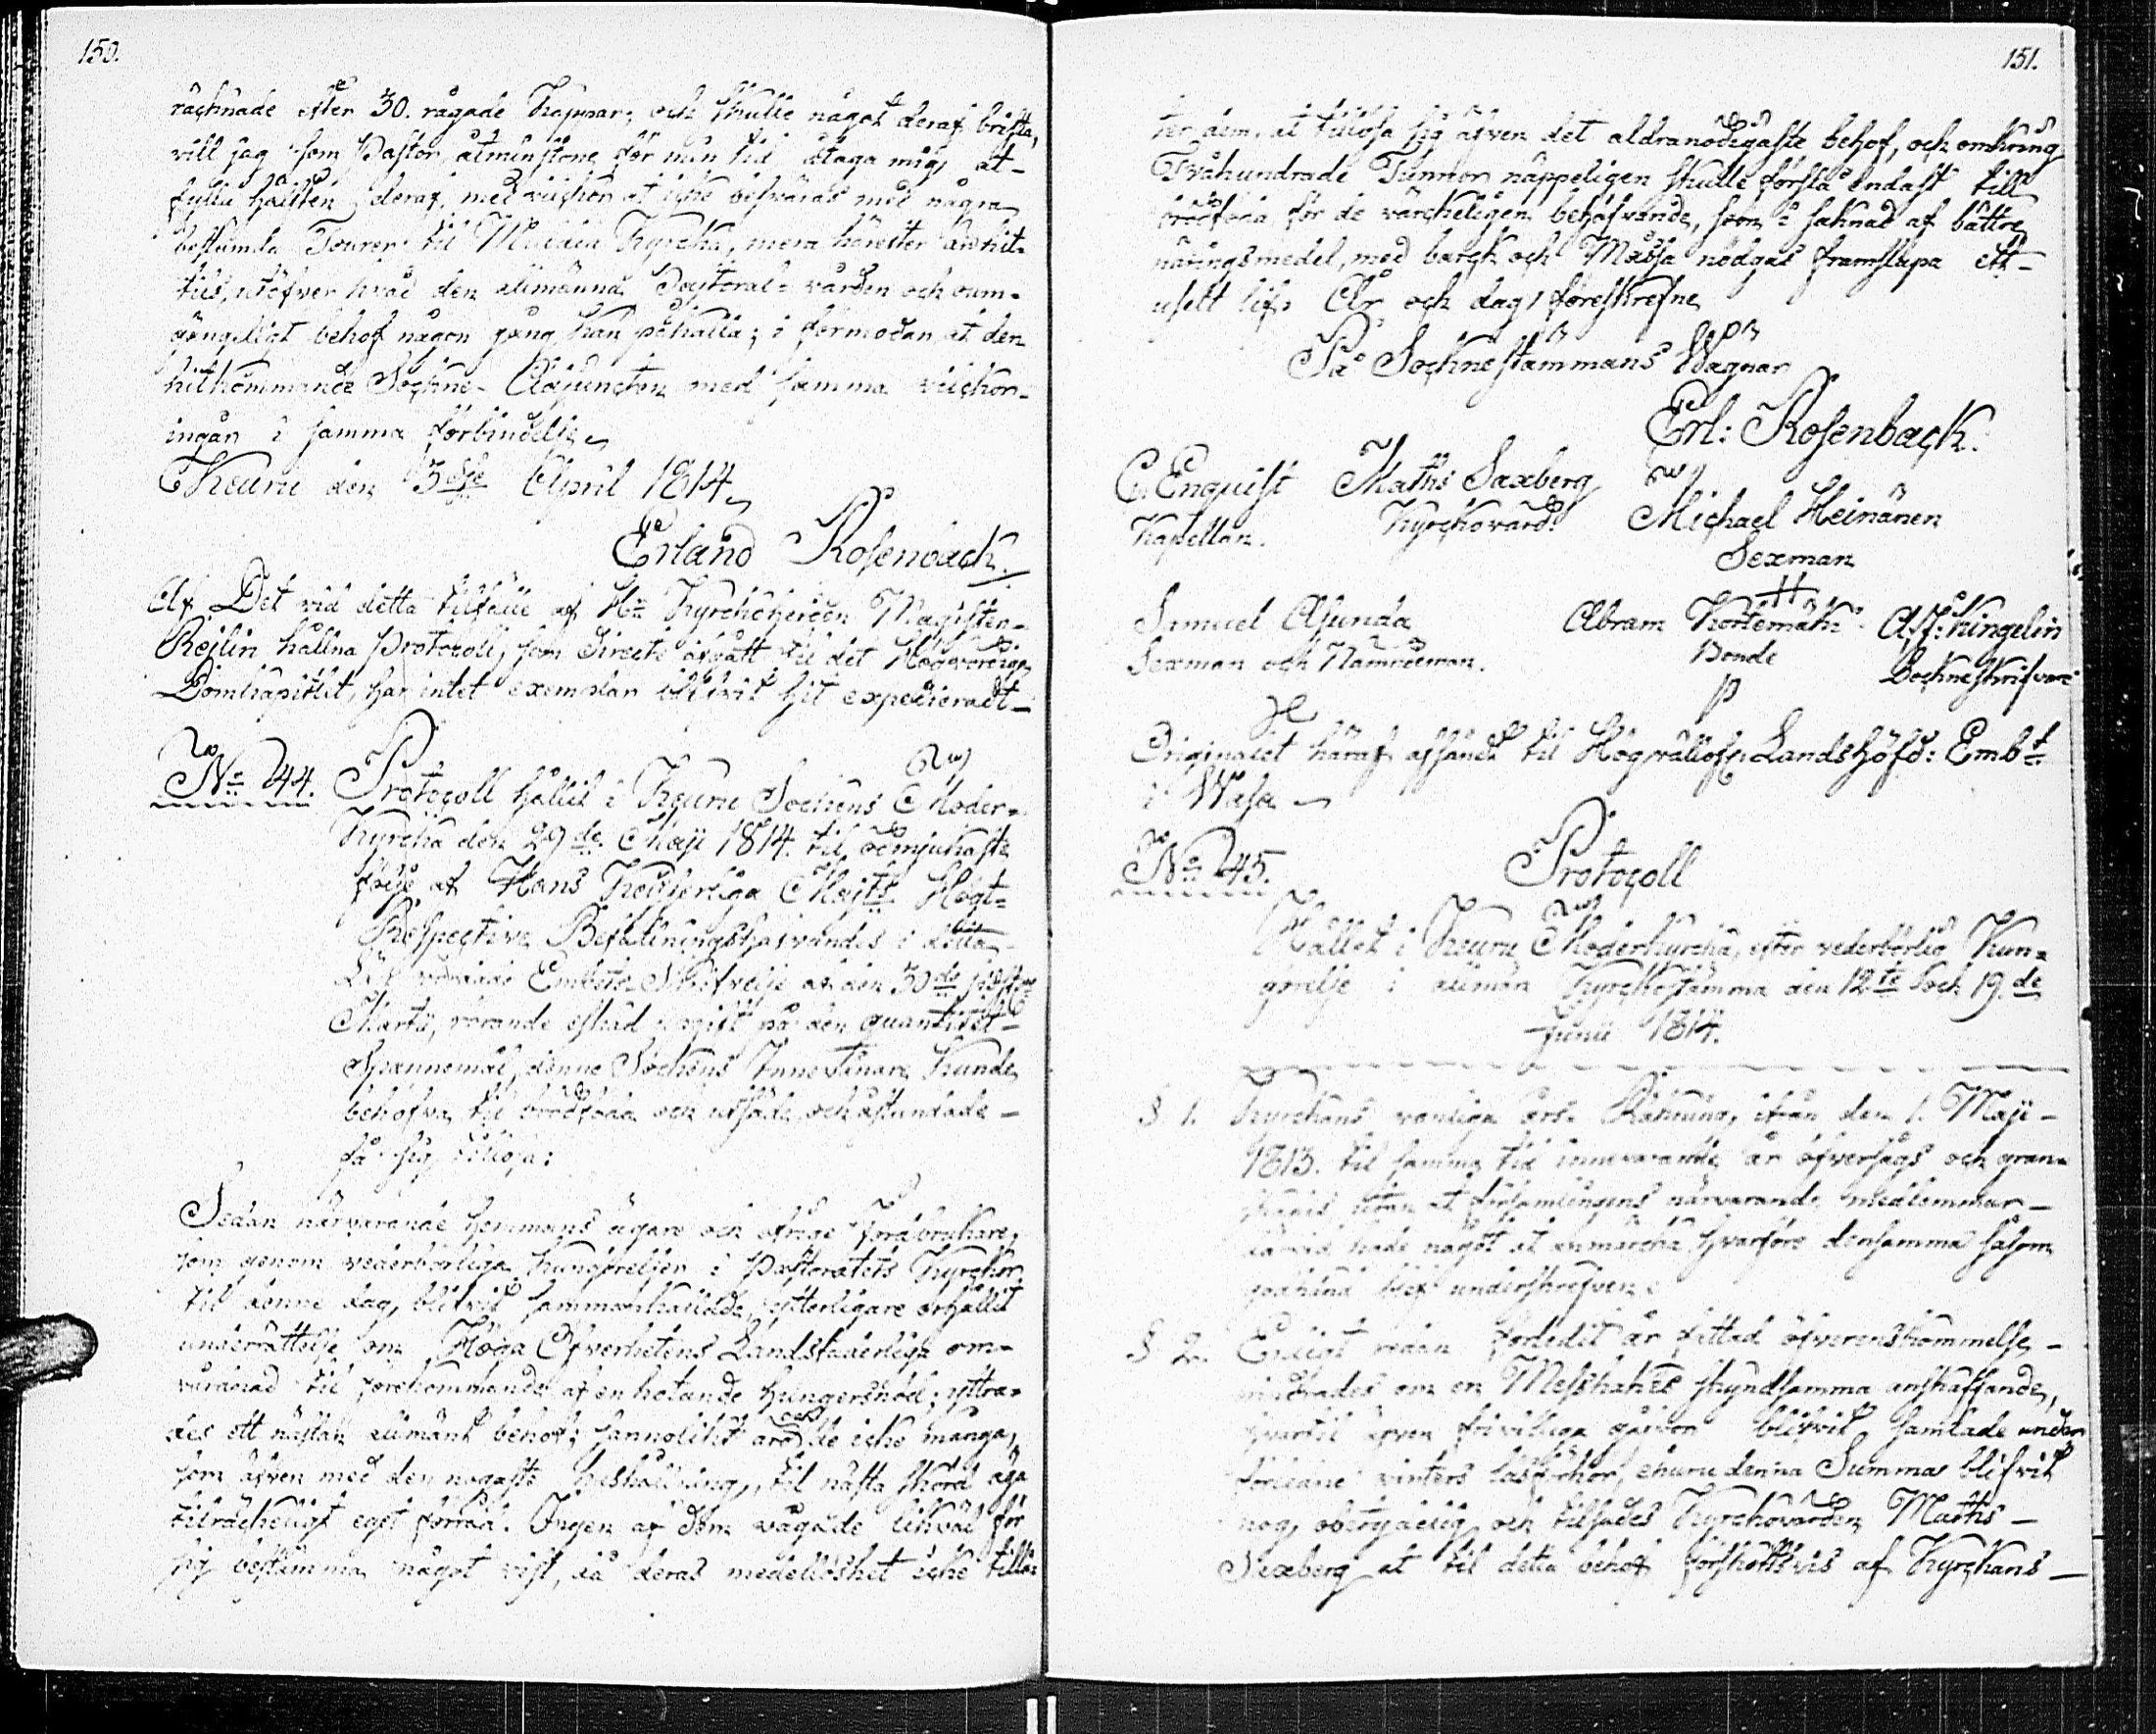 150.
räcknade efter 30. rågade Kappar; och skulle något deraf brista,
vill jag som Pastor åtminstone för min tid åtaga mig, at
fylla hälften deraf, med vilckor at icke besväras med några
bestämda Tourer til Multia Kyrcka, mera härefter än hit-
tils, utöfver hvad den allmänna Pastoral-vården och oum-
gängeligt behof någon gång kan påkalla; i förmodan at den
hitkommande Sockne-Adjuncten med samma vilckor
ingår i samma förbindelse.
Keuru den 3dje April 1814.
Erland Rosenback.
Af Det vid detta tilfälle af Hr Kyrckoherden Magister
Reilin hållna Protocoll, som directe afgått til det Högvördige
Domkapitlet, har intet exemplar blifvit hit expedieradt
No 44. Protocoll hållit i Keuru Sockens Moder-
kyrcka den 29de Maji 1814. til ödmjukaste
följe af Hans Keijserliga Maijts Högt-
Respective Befallningshafvandes i detta
Län Embets Skrifvelse af den 30de sistne
Martii, rörande uppgift på den quantitet
Spannemål, denne Sockens Innevånare kunde
behöfva til brödföda och utsäde, och åstundade
få sig tillösa:
Sedan närvarande hemmans ägare och öfrige Jordbrukare,
som genom vederbörliga kungörelsen i Pastoratets Kyrckor
til denne dag, blifvit sammankallade, ytterligare erhållit
underrättelse om Höga Öfverhetens Landsfaderliga om-
vårdnad til förekommande af en hotande hungersnöd; yttra-
des ett nästan allmänt behof; sannolikt äro och de icke många,
som äfven med den nogaste hushållning, til nästa skörd äga
tilräckeligt eget förråd. Ingen af dem vågade likväl för
sig bestämma något vist, då deras medellöshet icke tillå-
151.
ter dem, at tillösa sig äfven det aldranödigaste behof, och omkring
Tvåhundrade Tunnor näppeligen skulle förslå endast till
brödföda för de värckeligen behöfvande, som i saknad af bättre
näringsmedel, med barck och Måssa nödgas framsläpa ett
uselt lif. År och dag, föreskrefne
På Sockne stämmans Wägnar
Erl: Rosenback.
C. Enquist Maths Saxberg
Kapellan. Kyrckovärd. Michael Heinänen
Sexman
Samuel Asunda Abram Kortemäki A.F: Kingelin
Sexman och Nämndeman. Bonde Sockneskrifvare
Originalet häraf afsändt til Högvällofl. Landshöfd: Embt
i Wasa
No 45. Protocoll
Hållet i Keuru Moderkyrcka, efter vederbörlig Kun-
görelse i allmän Kyrckostämma den 12te och 19.de
Junii 1814.
§ 1. Kyrckans vanliga års Räkning, ifrån den 1. Maji
1813. til samma tid innevarande år öfversågs och gran-
skades utan at församlingens närvarande medlemmar
därvid hade något at anmärcka hvarföre densamma såsom
godkänd blef underskrefven.
§ 2. Enligt redan förledit år fattad öfverenskommelse
om en Messhakes skyndsamma anskaffande,
hvartil äfven friviliga gåfvor blifvit samlade under
förledne vinters läseförhör, ehuru denna Summa blifvit
nog obetydelig och tilsades Kyrckovärden Maths
Saxberg at til detta behof förskottsvis af Kyrckans